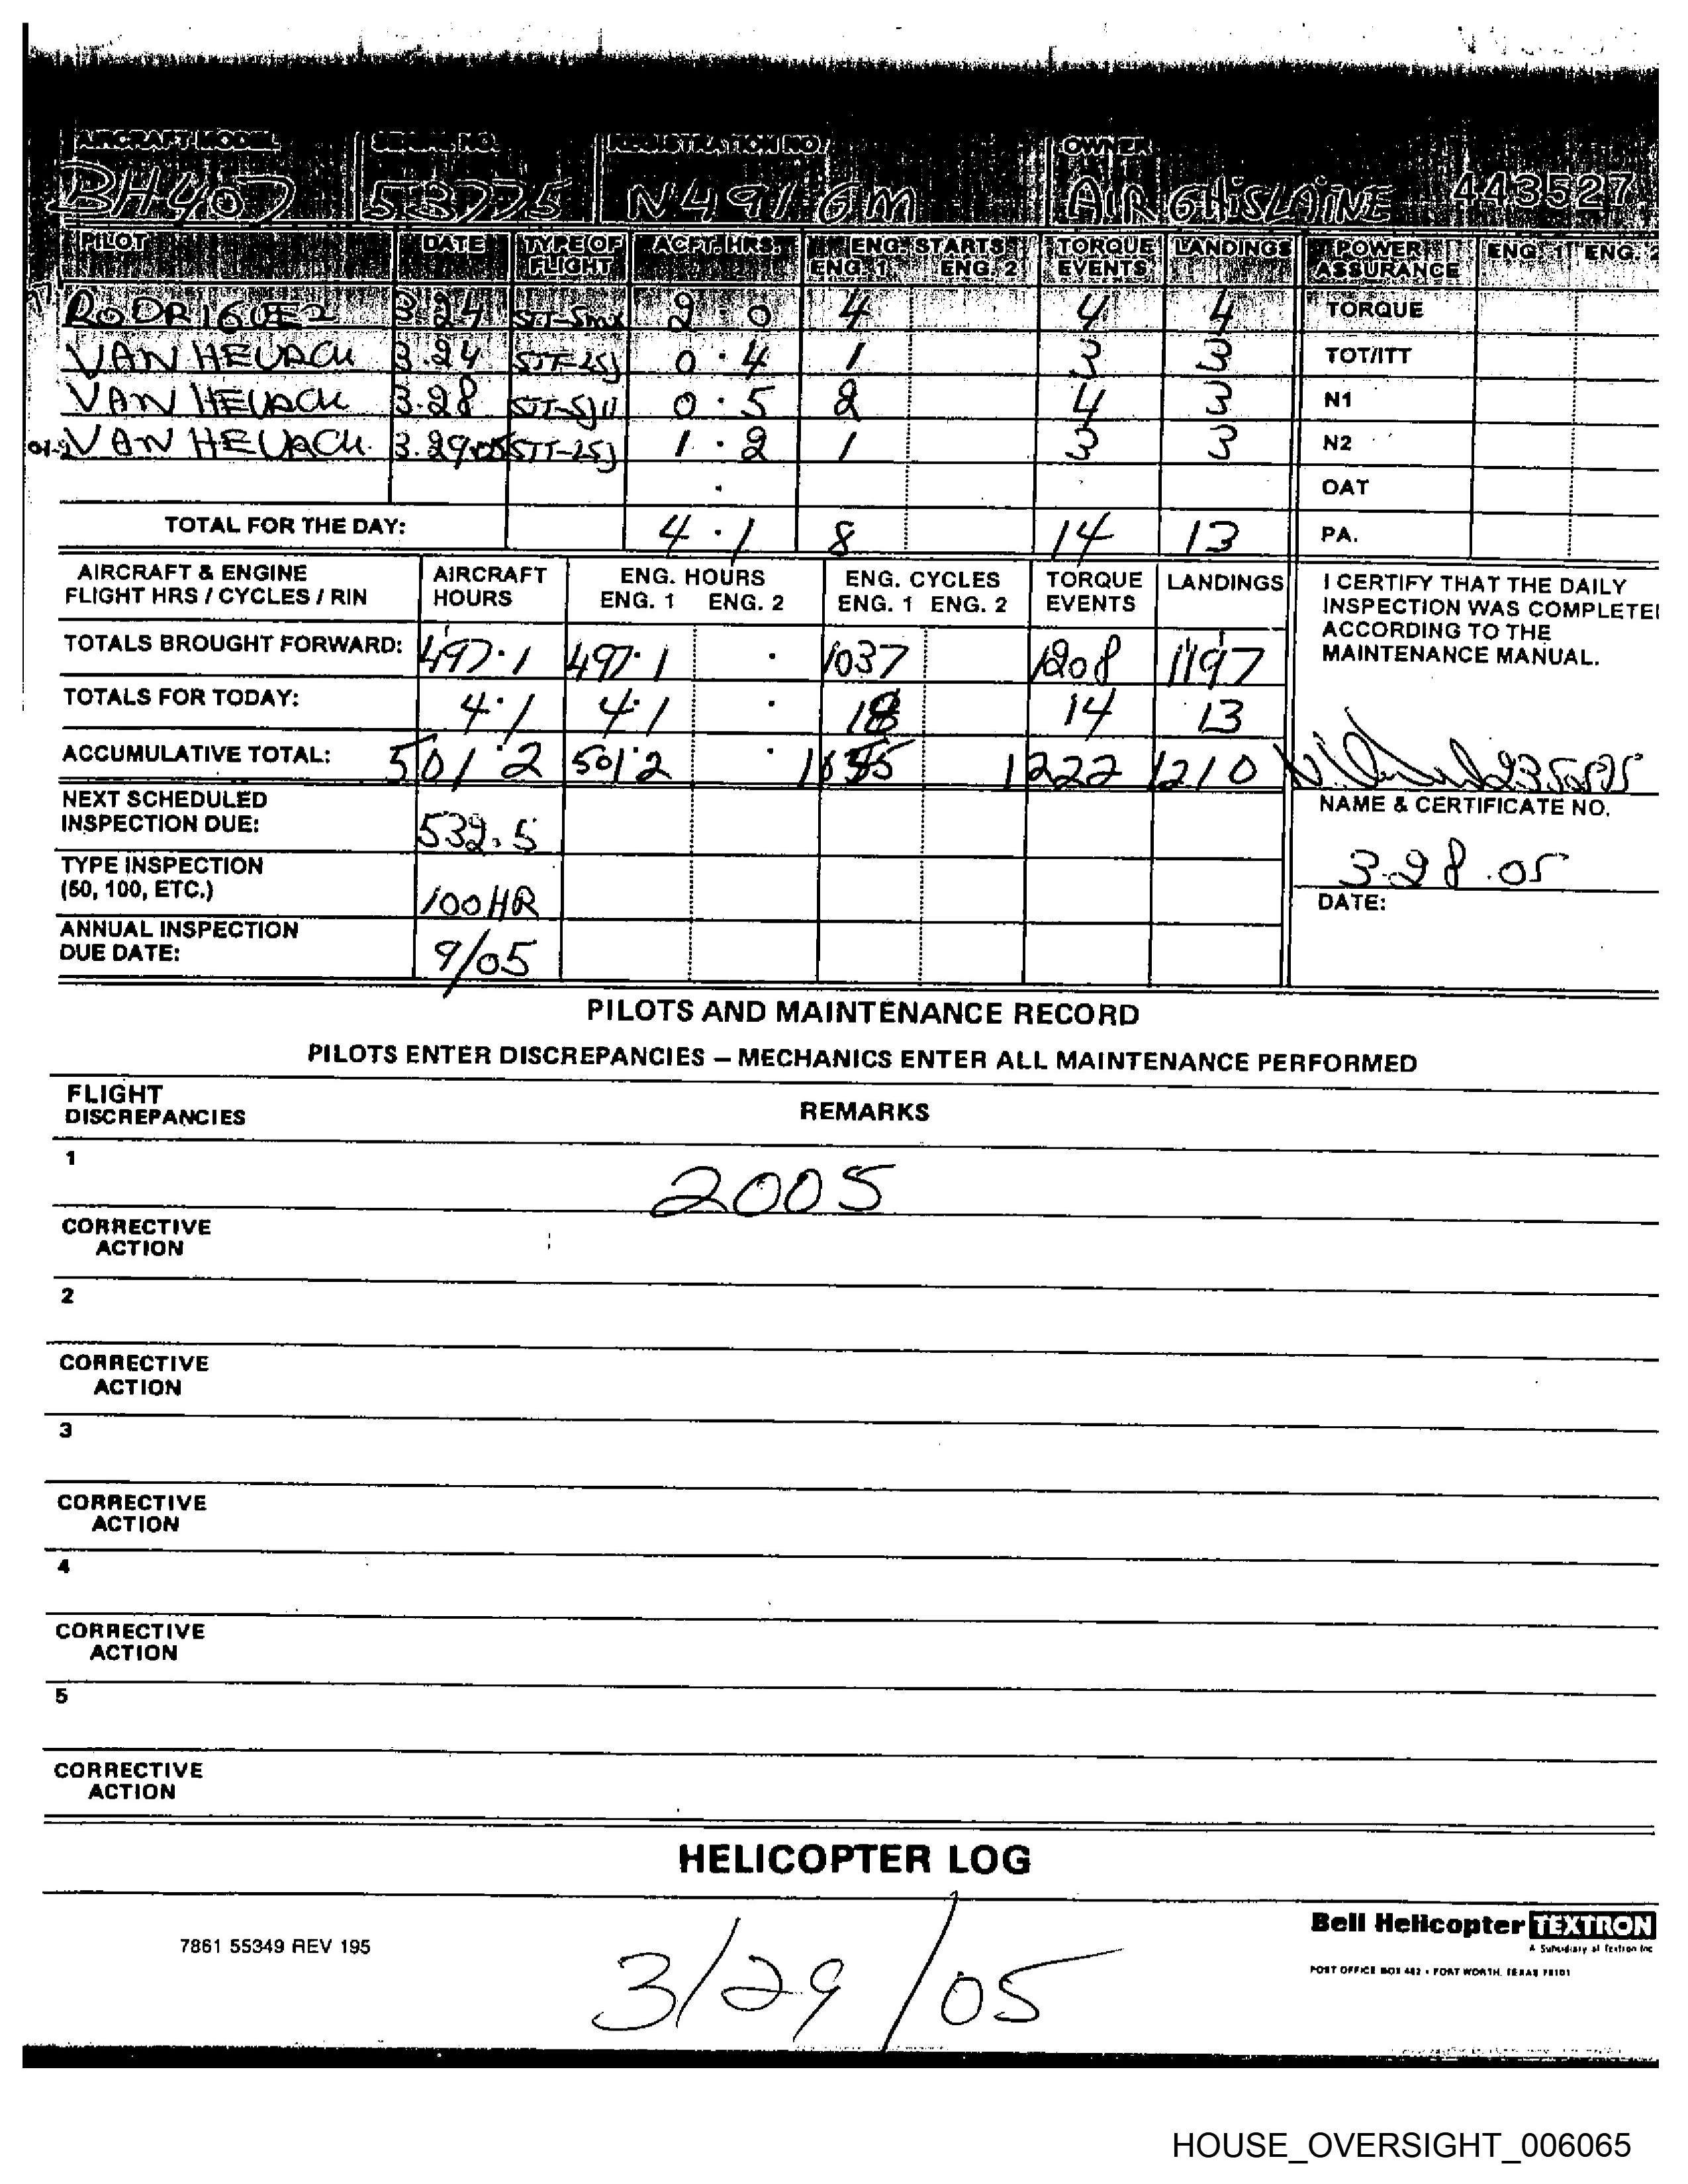 AIRCRAFT MODEL SERIAL NO. REGISTRATION NO. OWNER
BH407 53775 N491GM AIR GHISLAINE 443527
PILOT DATE TYPE OF FLIGHT ACFT. HRS. ENG. STARTS ENG. 1 ENG. 2 TORQUE EVENTS LANDINGS POWER ASSURANCE ENG. 1 ENG. 2
RODRIGUEZ 3.24 2 0 4 4 4 TORQUE
VAN HEUACH 3.24 STT-LSJ 0.4 1 3 3 TOT/ITT
VAN HEUACH 3.28 0.5 2 4 3 N1
VAN HEUACH. 3.29.05 STT-LSJ 1.2 1 3 3 N2
OAT
TOTAL FOR THE DAY: 4.1 8 14 13 PA.
AIRCRAFT & ENGINE FLIGHT HRS / CYCLES / RIN AIRCRAFT HOURS ENG. HOURS ENG. 1 ENG. 2 ENG. CYCLES ENG. 1 ENG. 2 TORQUE EVENTS LANDINGS
I CERTIFY THAT THE DAILY
INSPECTION WAS COMPLETE
ACCORDING TO THE
MAINTENANCE MANUAL.
TOTALS BROUGHT FORWARD: 497.1 497.1 1037 1208 1197
TOTALS FOR TODAY: 4.1 4.1 14 13
ACCUMULATIVE TOTAL: 501.2 501.2 1222 1210
NAME & CERTIFICATE NO.
NEXT SCHEDULED
INSPECTION DUE: 532.5
TYPE INSPECTION
(50, 100, ETC.) 100HR
3.28.05
DATE:
ANNUAL INSPECTION
DUE DATE: 9/05
PILOTS AND MAINTENANCE RECORD
PILOTS ENTER DISCREPANCIES – MECHANICS ENTER ALL MAINTENANCE PERFORMED
FLIGHT
DISCREPANCIES REMARKS
1
2005
CORRECTIVE
ACTION
2
CORRECTIVE
ACTION
3
CORRECTIVE
ACTION
4
CORRECTIVE
ACTION
5
CORRECTIVE
ACTION
HELICOPTER LOG
7861 55349 REV 195
3/29/05
Bell Helicopter TEXTRON
A Subsidiary of Textron Inc
POST OFFICE BOX 482 • FORT WORTH, TEXAS 76101
HOUSE_OVERSIGHT_006065